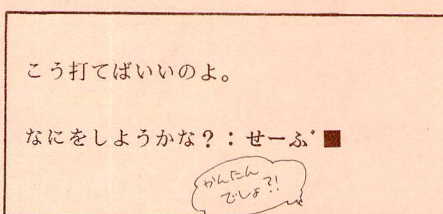 こう打てばいいのよ。
なにをしようかな？：せーふ゛■
かんたん
でしょ?!